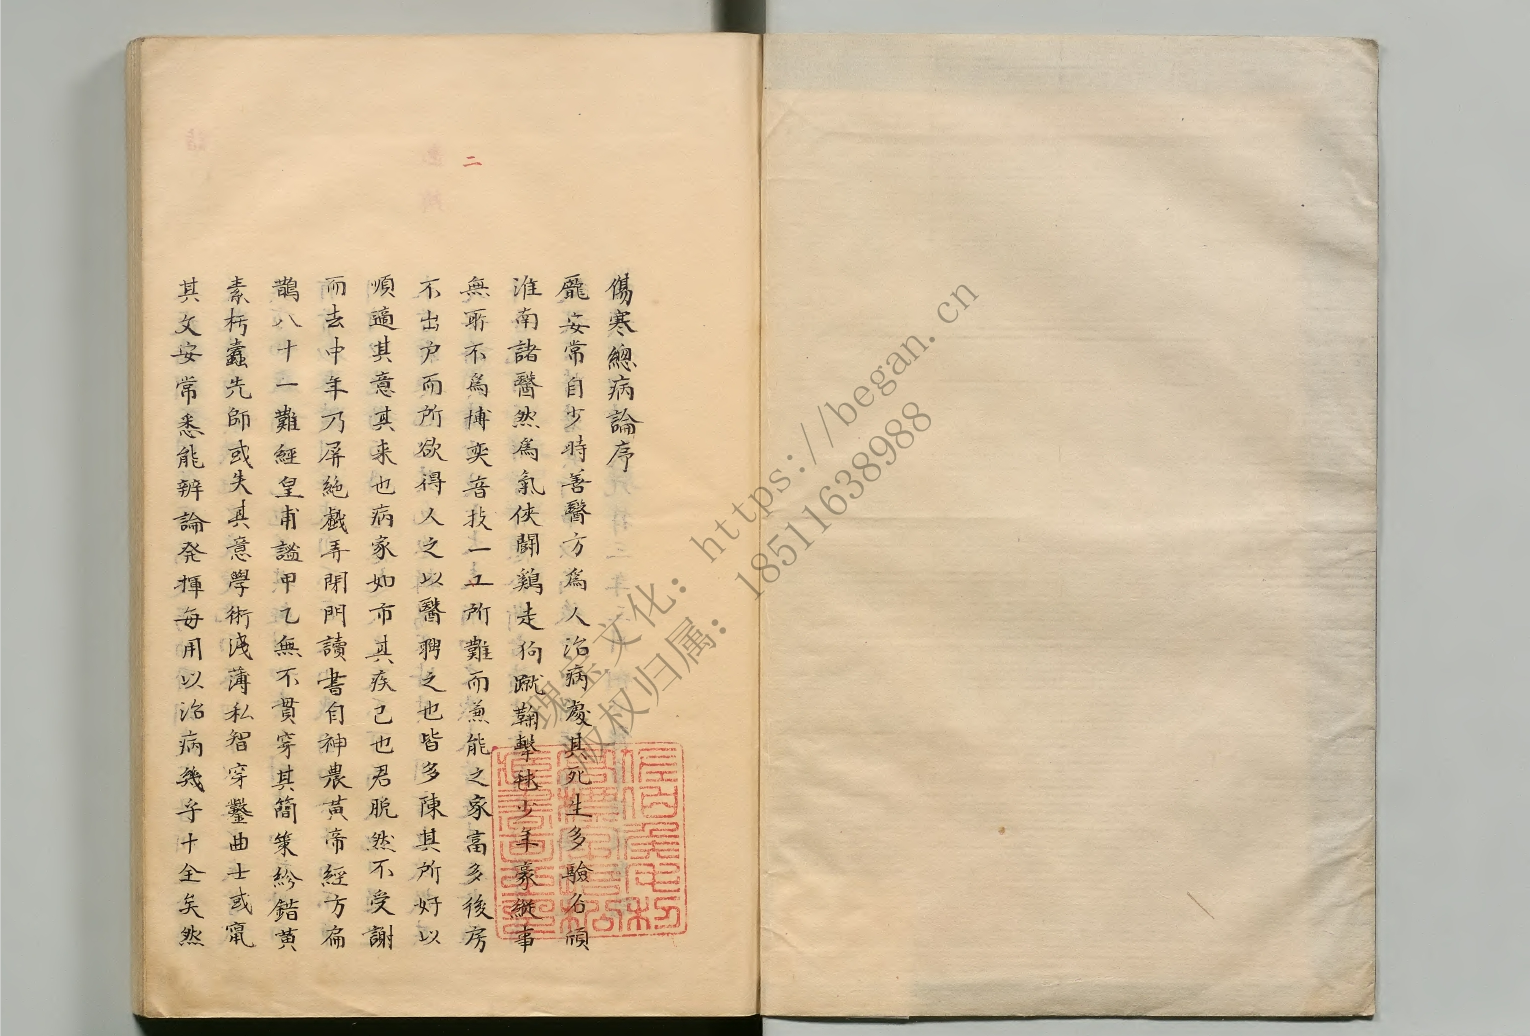 二
傷寒總病論序
龐安常自少時善醫方為人治病處其死生多驗名傾
淮南諸醫然為氣俠鬪鷄走狗蹴鞠擊毬少年豪縱事
無所不為博奕音技一工所難而兼能之家富多後房
不出户而所欲得人之以醫聘之也皆多陳其所好以
順適其意其来也病家如市其疾已也君脱然不受謝
而去中年乃屏絶戲弄閉門讀書自神農黃帝經方扁
鵲八十一難經皇甫謐甲乙無不貫穿其簡策紛錯黄
素朽蠹先師或失其意學術淺薄私智穿鑿曲士或竄
其文安常悉能辨論発揮每用以治病幾乎十全矣然
瑰宝文化：https://began.cn
版权归属：18511638988